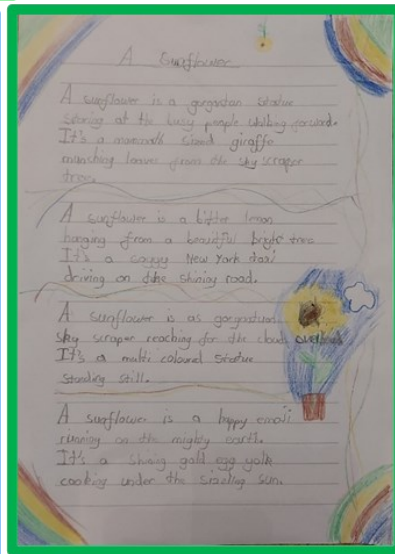 A Sunflower
A sunflower is a gargantan statue
staring at the busy people walking forward.
It's a mammoth sized giraffe
munching leaves from the sky scraper
tree.
A sunflower is a bitter lemon
hanging from a beautiful bright tree
It's a soggy New York taxi
driving on the shining road.
A sunflower is as
sky scraper reaching for the clouds
It's a multi coloured statue
standing still.
A sunflower is a happy emoji
running on the mighty earth.
It's a shining gold egg yolk
cooking under the sizzling sun.